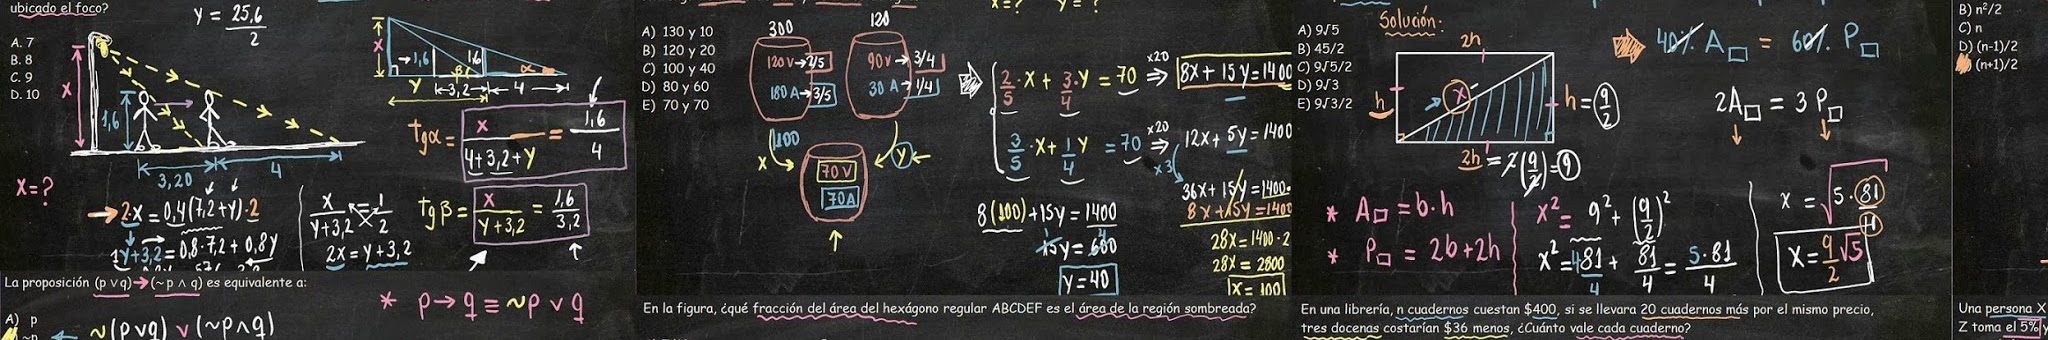 ubicado el foco?
y = 25,6
2
A. 7
B. 8
C. 9
D. 10
x
1,6
3,20
4
x=?
2·x = 0,4(7,2+y)·2
1y+3,2 = 0,8·7,2 + 0,8y
x
y+3,2
1
2
2x = y+3,2
x
1,6
1,6
β
α
y
3,2
4
tgα = x
4+3,2+y
= 1,6
4
tgβ = x
y+3,2
= 1,6
3,2
La proposición (p v q)→(~p ∧ q) es equivalente a:
A) p
~(p∨q) ∨ (~p∧q)
* p→q ≡ ~p ∨ q
A) 130 y 10
B) 120 y 20
C) 100 y 40
D) 80 y 60
E) 70 y 70
300
120 V→2/5
180 A→3/5
120
90 V→3/4
30 A→1/4
100
x
y
70 V
70A
x=? y=?
2/5·x + 3/4·y = 70 ⇒ x20 8x + 15y = 1400
3/5·x + 1/4 y = 70 ⇒ x20 12x + 5y = 1400
x3
36x + 15y = 1400·
8x + 15y = 1400
8(100) + 15y = 1400
15y = 600
y = 40
28x = 1400·2
28x = 2800
x = 100
En la figura, ¿qué fracción del área del hexágono regular ABCDEF es el área de la región sombreada?
A) 9√5
B) 45/2
C) 9√5/2
D) 9√3
E) 9√3/2
Solución:
2h
h
x
h = 9/2
2h = 2(9/2) = 9
40% A□ = 60% P□
2A□ = 3 P□
* A□ = b·h
* P□ = 2b+2h
x² = 9² + (9/2)²
x² = 4·81/4 + 81/4 = 5·81/4
x = √5·81/4
x = 9/2 √5
En una librería, n cuadernos cuestan $400, si se llevara 20 cuadernos más por el mismo precio,
tres docenas costarían $36 menos, ¿Cuánto vale cada cuaderno?
B) n²/2
C) n
D) (n-1)/2
(n+1)/2
Una persona X
Z toma el 5% y